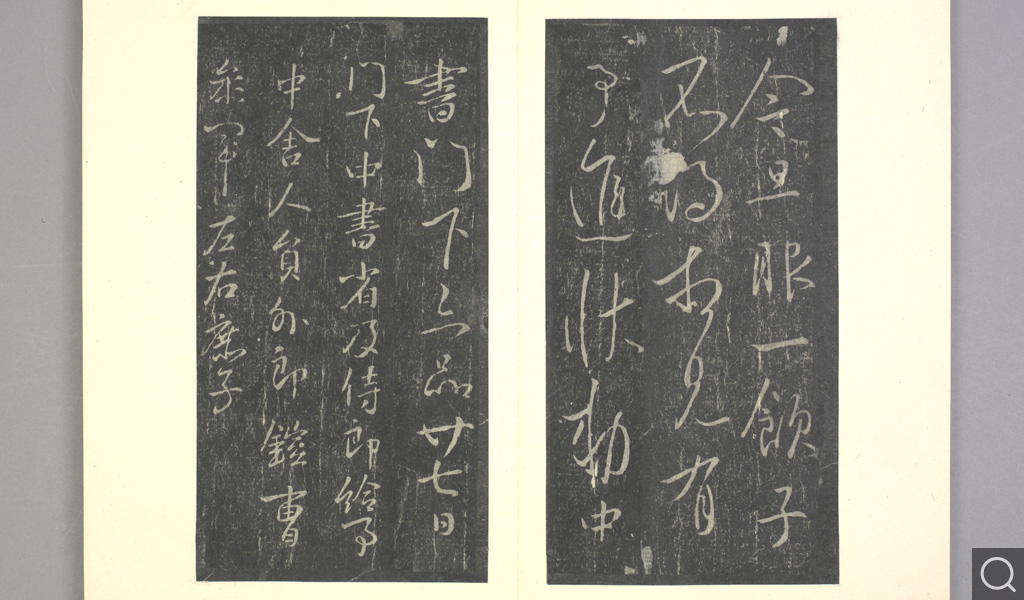 今旦眼一餘子
不得專見有
事進狀勅中
書門下三品廿七日
門下中書省及侍郎給事
中舍人員外郎鎧曹
參軍左右庶子